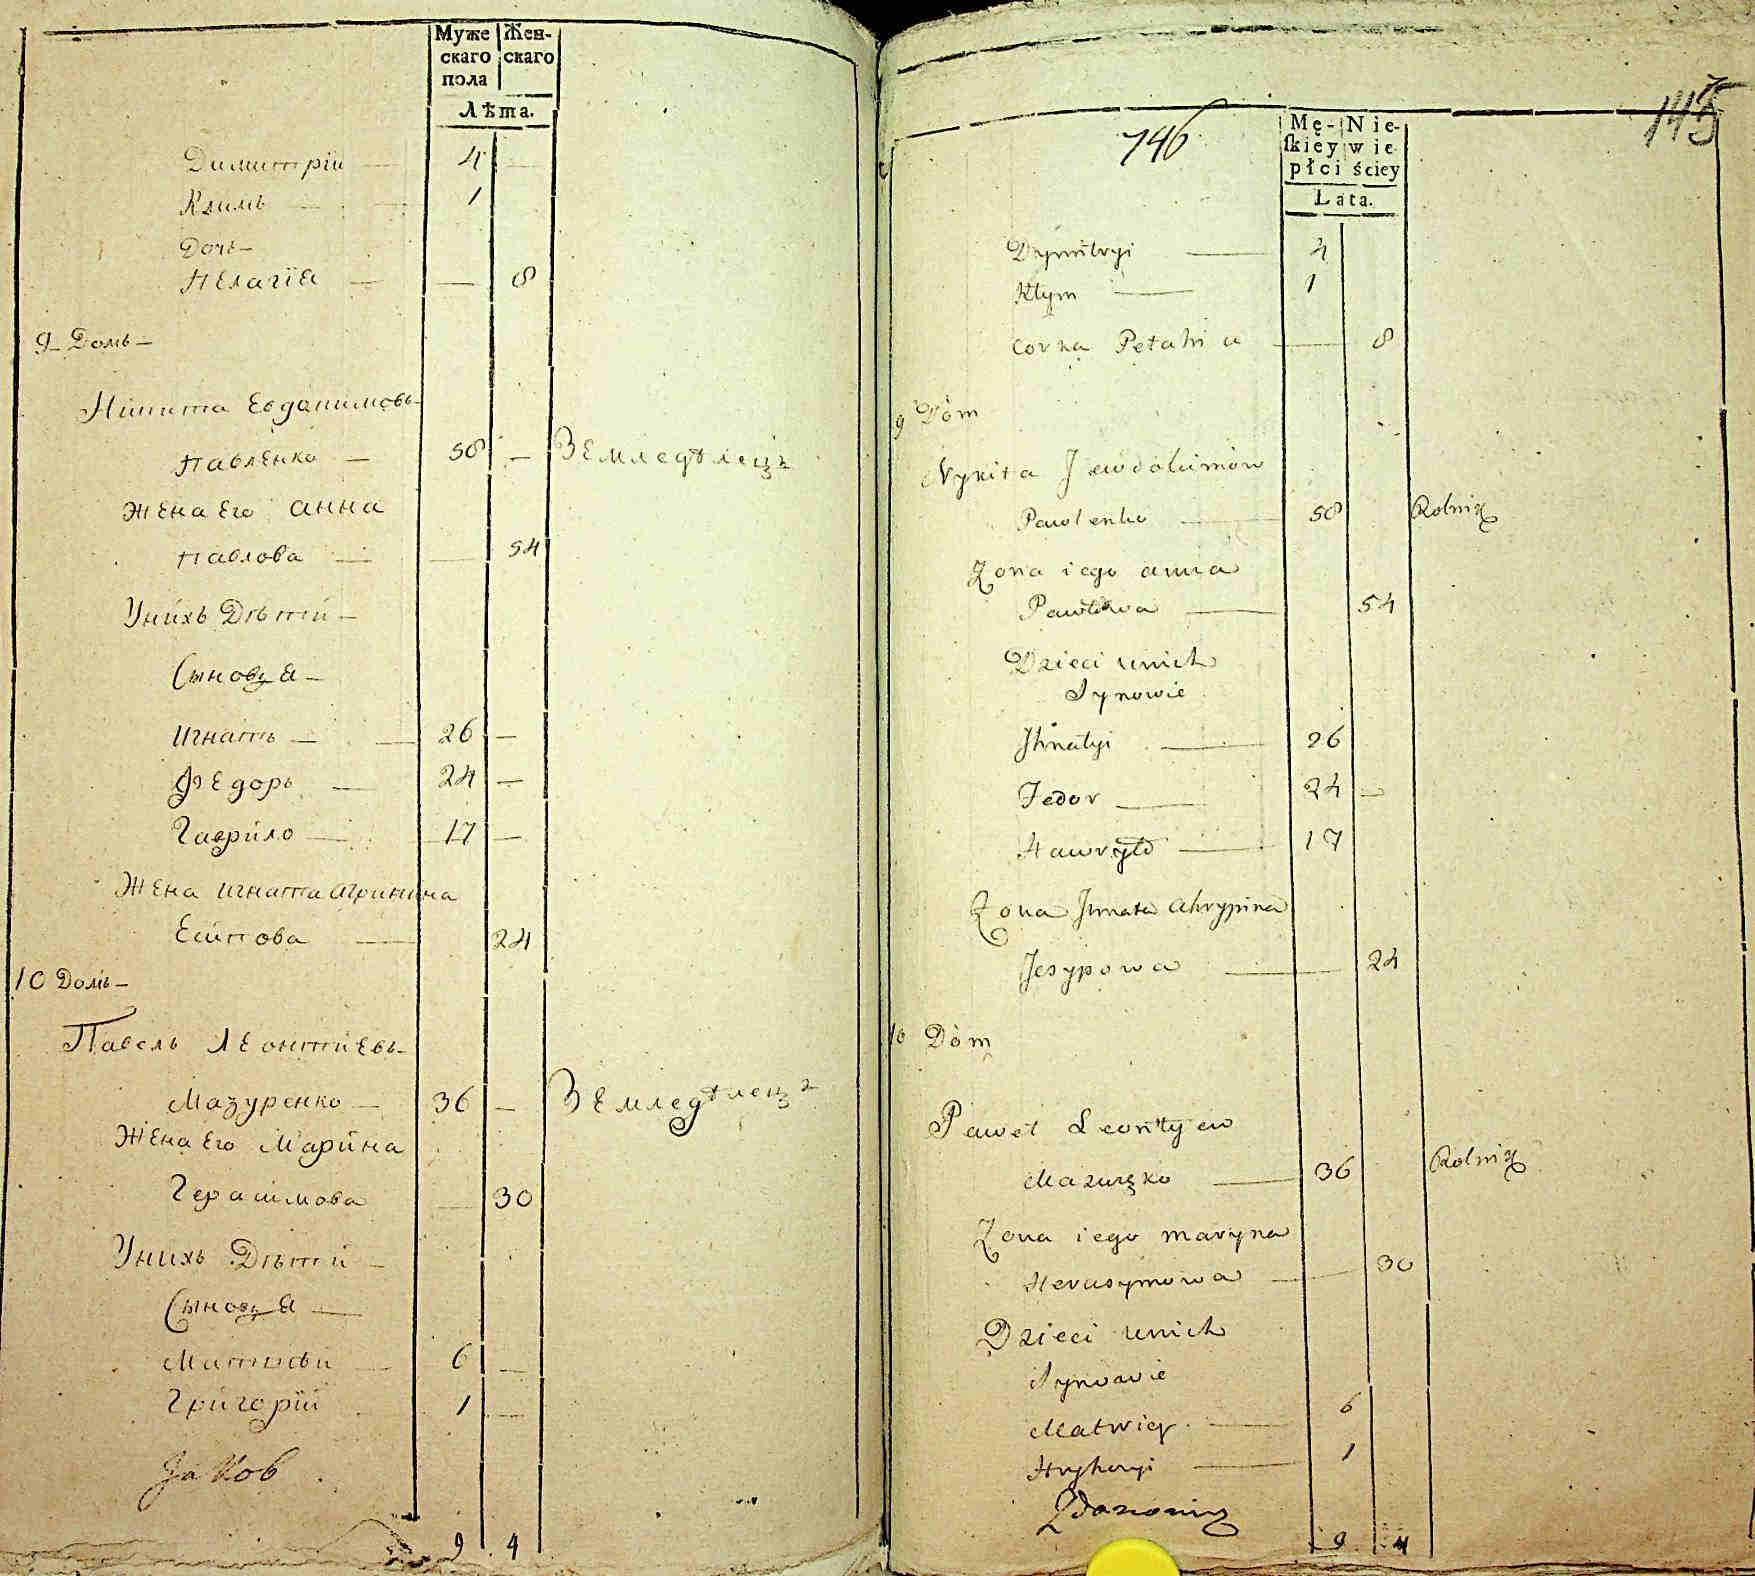 Муже Жен-
скаго скаго
пола
Лѣта.
Димитрїи — 4 —
Климъ — 1
Дочь —
Пелагїа — — 8
9 Домъ —
Никита Евдокимовъ
Павленко — 58 — Земледѣлецъ
Жена Его Анна
Павлова — — 54
Унихъ Дѣтти —
Сыновя —
Игнатъ — 26 —
Федоръ — 24 —
Гаврило — 17 —
Жена Игната Агрипина
Есипова — 24
10 Домъ —
Павелъ Леонтиевъ
Мазуренко — 36 — Земледѣлецъ
Жена Его Марина
Герасимова — 30
Унихъ Дѣтти —
Сыновя —
Матвѣи — 6 —
Григорїи 1 —
9 4
145
746
Mę- Nie-
skiey wie-
płci ściey
Lata.
Dymitryi — 4
Kłym — 1
corka Pełahia — 8
9 Dóm
Nykita Jewdokimow
Pawlenko — 58 Rolnik
Zona iego anna
Pawłowa — 54
Dzieci unich
Synowie
Jhnatyi — 26
Fedor — 24 —
Hawryło — 17
Zona Jhnata Ahrypina
Jesypowa — 24
10 Dóm
Paweł Leontyew
Mazuręko — 36 Rolnik
Zona iego maryna
Herasymowa — 30
Dzieci unich
Synowie
Matwiey — 6
Hryhoryi — 1
9 4